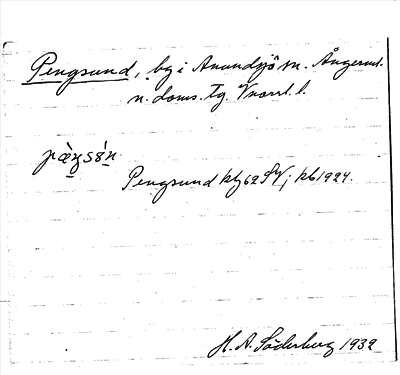 Pengsund, by i Anundsjö sn. Ångerml.
n. doms. Tg. Vnorrl. l.
pæ̀ŋsón
Pengsund ktg 62 SV; kb 1924.
H. A. Söderberg 1932